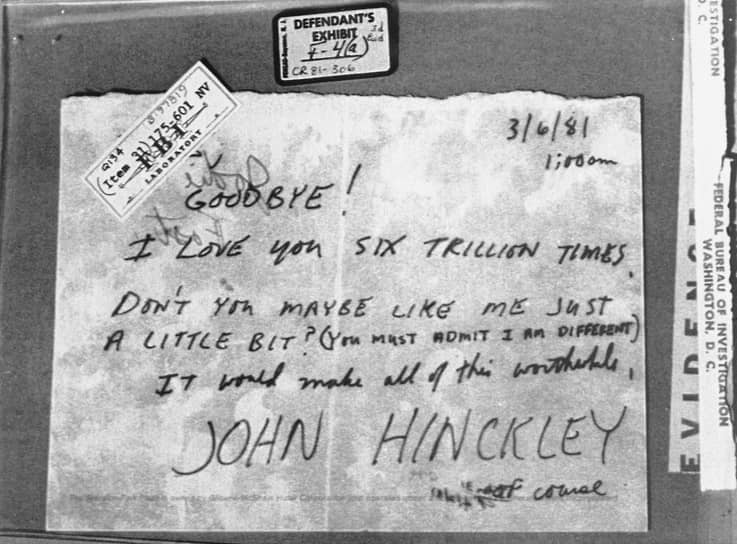 DEFENDANT'S
EXHIBIT
I-4(a)
CR 81-306
Q134
(Item 31) 175-601 NV
FBI
LABORATORY
3/6/81
1:00am
GOODBYE!
I LOVE you SIX TRILLION TIMES.
DON'T YOU MAYBE LIKE ME JUST
A LITTLE BIT? (YOU MUST ADMIT I AM DIFFERENT)
IT would make all of this worthwhile.
JOHN HINCKLEY
of course
EVIDENCE
FEDERAL BUREAU OF INVESTIGATION
WASHINGTON, D. C.